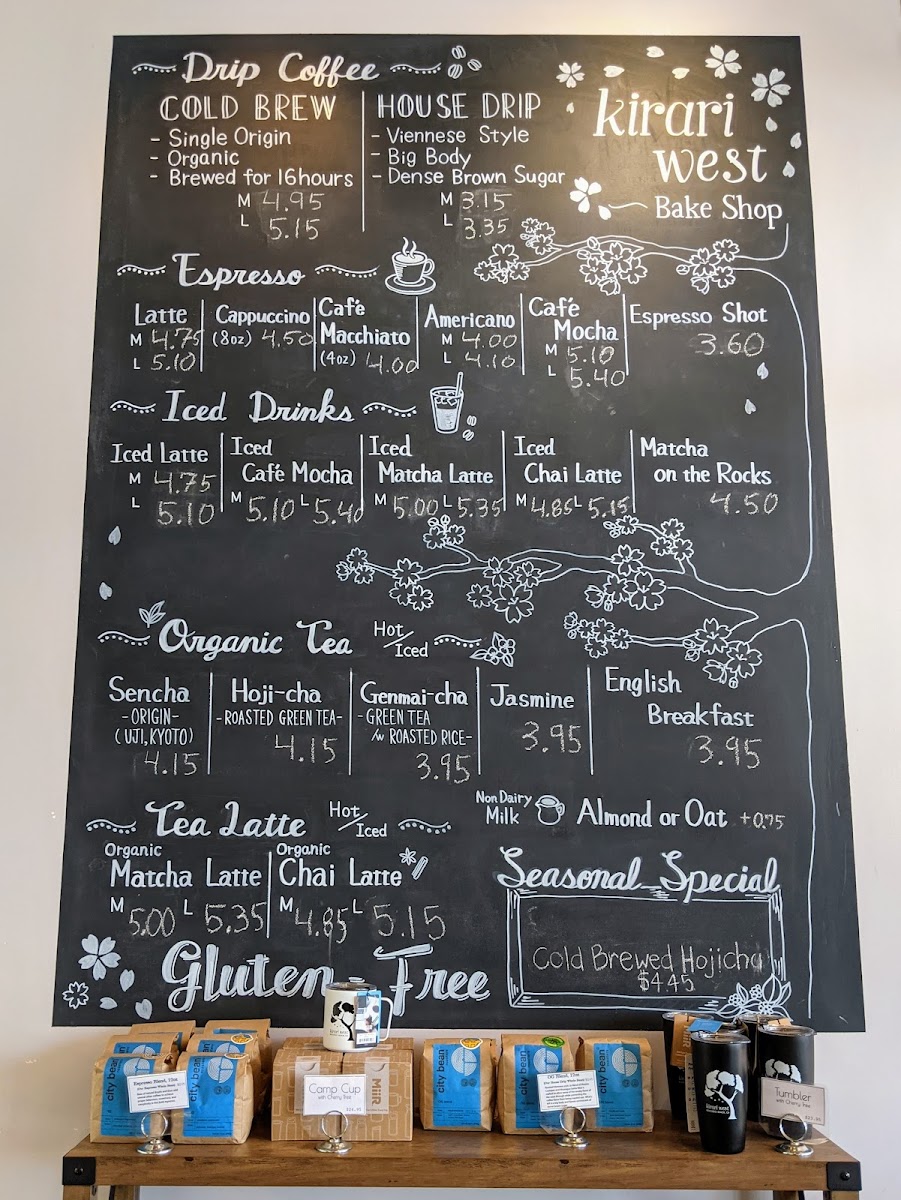 Drip Coffee
COLD BREW
- Single Origin
- Organic
- Brewed for 16hours
M 4.95
L 5.15
HOUSE DRIP
- Viennese Style
- Big Body
- Dense Brown Sugar
M 3.15
L 3.35
kirari
west
Bake Shop
Espresso
Latte
M 4.75
L 5.10
Cappuccino
(8oz) 4.50
Café
Macchiato
(4oz) 4.00
Americano
M 4.00
L 4.10
Café
Mocha
M 5.10
L 5.40
Espresso Shot
3.60
Iced Drinks
Iced Latte
M 4.75
L 5.10
Iced
Café Mocha
M 5.10 L 5.40
Iced
Matcha Latte
M 5.00 L 5.35
Iced
Chai Latte
M 4.85 L 5.15
Matcha
on the Rocks
4.50
Organic Tea Hot/Iced
Sencha
-ORIGIN-
(UJI, KYOTO)
4.15
Hoji-cha
-ROASTED GREEN TEA-
4.15
Genmai-cha
-GREEN TEA
/w ROASTED RICE-
3.95
Jasmine
3.95
English
Breakfast
3.95
Non Dairy
Milk
Almond or Oat +0.75
Tea Latte Hot/Iced
Organic
Matcha Latte
M 5.00 L 5.35
Organic
Chai Latte
M 4.85 L 5.15
Seasonal Special
Cold Brewed Hojicha
$4.45
Gluten-Free
city bean
city bean
city bean
city bean
city bean
Espresso Blend, 12oz
Camp Cup
with Cherry Tree
MiiR
Tumbler
with Cherry Tree
kirari west